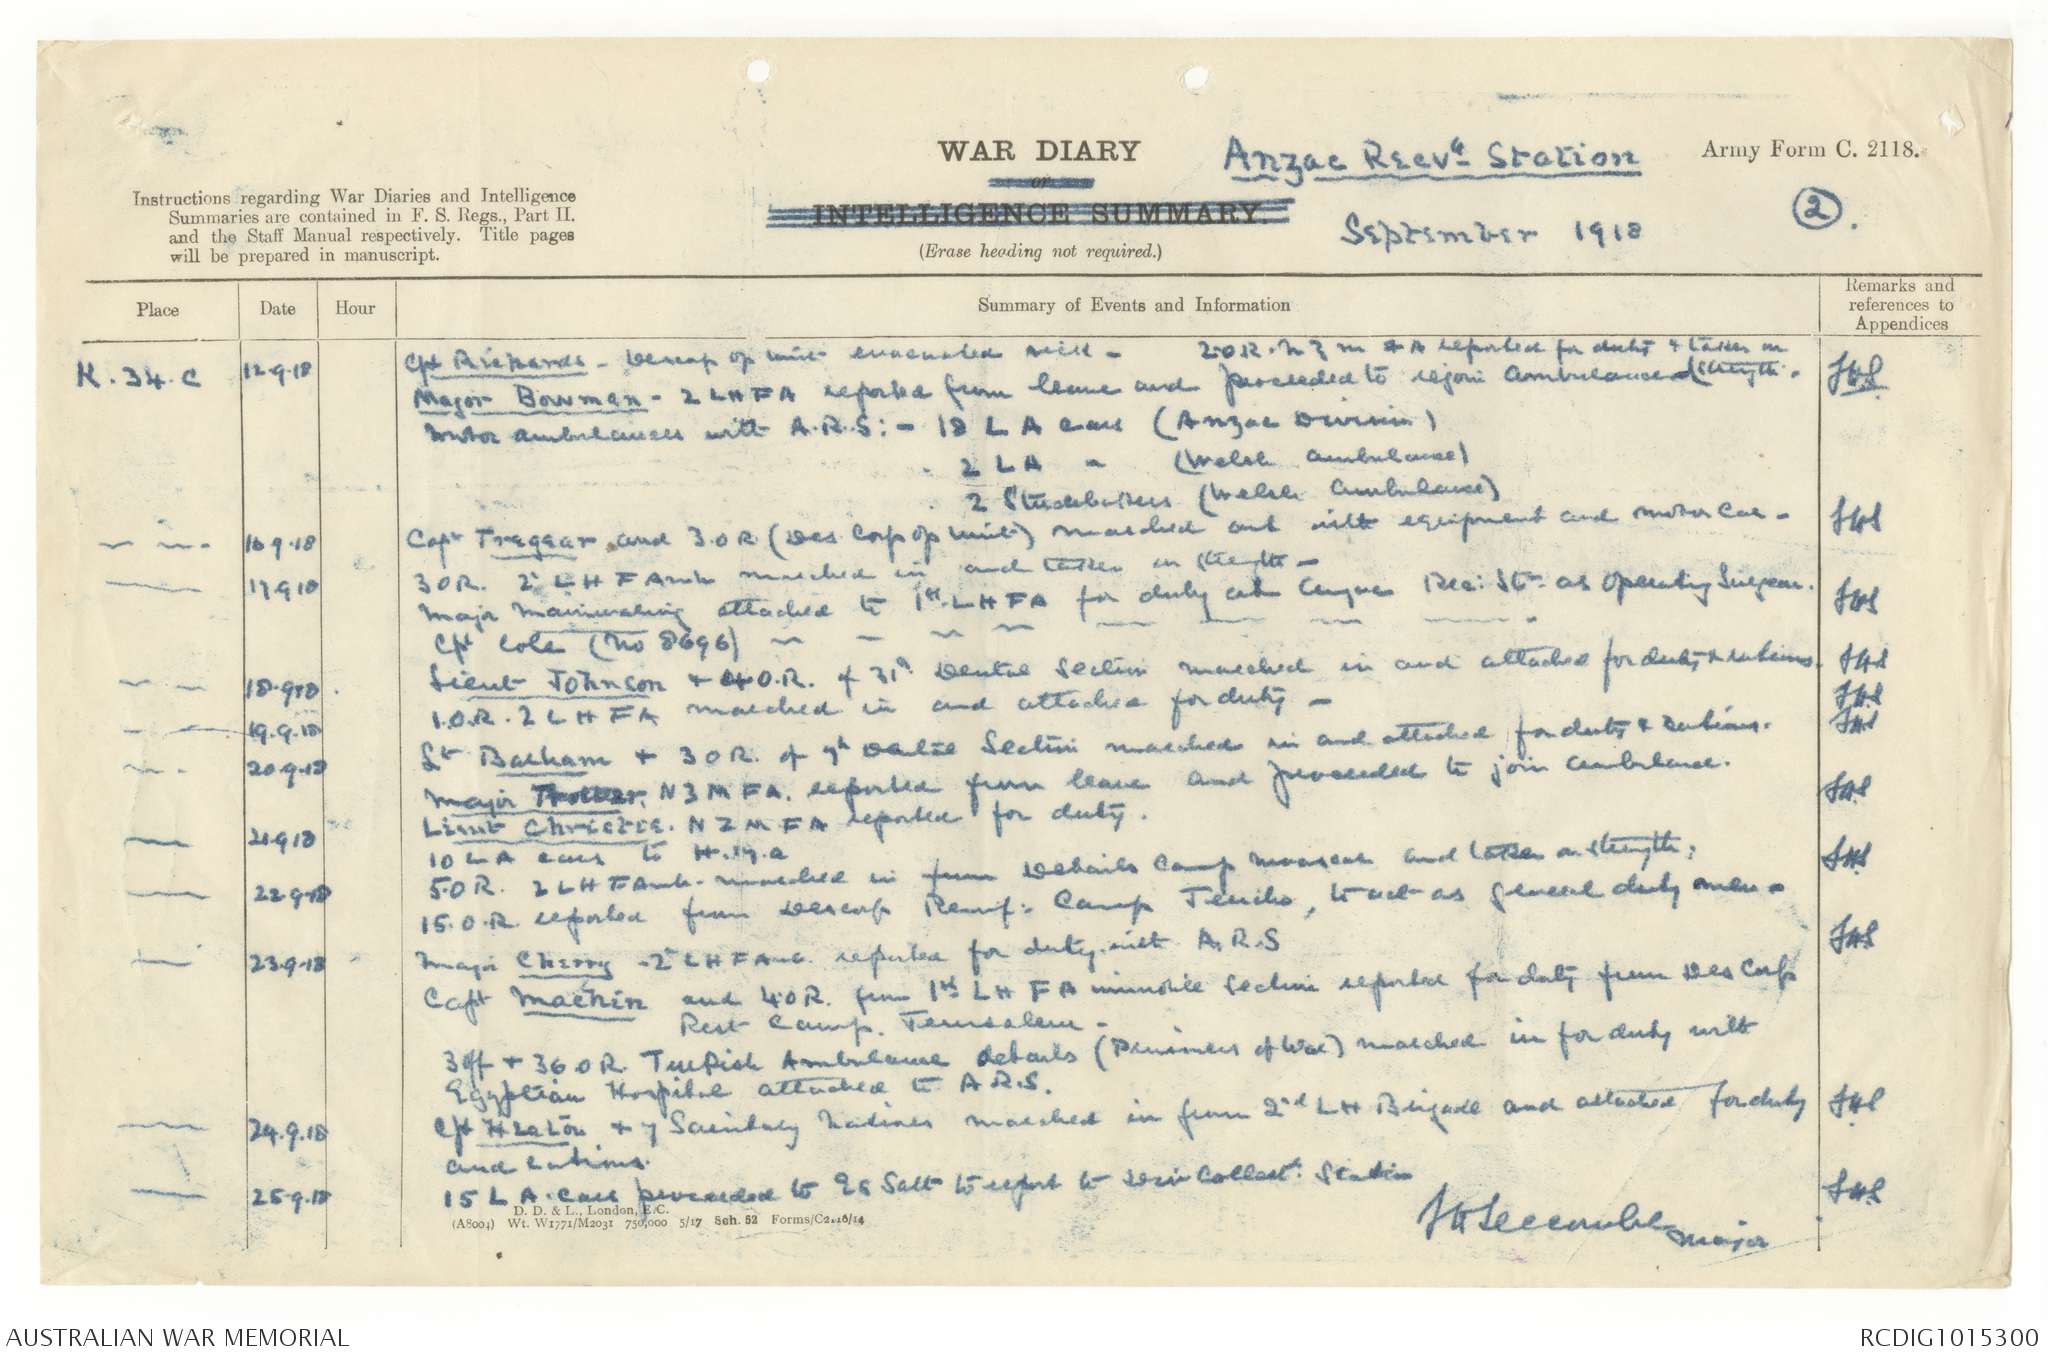 WAR DIARY
or
INTELLIGENCE SUMMARY.
(Erase heading not required.)
Anzac Recvg Station
September 1918
Army Form C. 2118.
2.
Instructions regarding War Diaries and Intelligence
Summaries are contained in F. S. Regs., Part II.
and the Staff Manual respectively. Title pages
will be prepared in manuscript.
Place Date Hour Summary of Events and Information Remarks and references to Appendices
K.34.C 12.9.18 Cpt Rickards - Descorp op unit evacuated sick - 2.O.R. N Z M F A reported for duty & taken on strength. JHS
Major Bowman - 2 LHFA reported from leave and proceeded to rejoin Ambulance
Motor ambulances with A.R.S: - 18 L A cars (Anzac Division)
2 L A " (Welsh Ambulance)
2 Studebakers (Welsh Ambulance)
16.9.18 Capt Tregear and 3.O.R (Des. Corp op unit) marched out with equipment and motor car - JHS
17.9.18 3 O.R. 2 LHFAmb marched in and taken on strength -
Major Mainwaring attached to 1st LHFA for duty at Anzac Rec: St. as Operating Surgeon. JHS
Cpt Cole (No 8696) " " " "
18.9.18 Lieut Johnson & 4 O.R. of 31st Dental Section marched in and attached for duty & rations. JHS
1.O.R. 2 LHFA marched in and attached for duty - JHS
19.9.18 JHS
Lt Balham & 3 O.R. of 9th Dental Section marched in and attached for duty & rations.
20.9.18 Major Trotter. NZMFA. reported from leave and proceeded to join ambulance. JHS
Lieut Christie. NZMFA reported for duty.
21.9.18 10 L A cars to H.17.a
5.O.R. 2 LHFAmb. marched in from Details Camp Moascar and taken on strength; JHS
22.9.18 15.O.R. reported from Descorp Reinf: Camp Jericho, to act as general duty men - JHS
23.9.18 Major Cherry - 2nd LHFAmb. reported for duty with A.R.S
Capt Machin and 4.O.R. from 1st LHFA immobile section reported for duty from Des Corps
Rest Camp. Jerusalem -
3 Off & 36.O.R. Turkish Ambulance details (Prisoners of War) marched in for duty with
Egyptian Hospital attached to A.R.S.
24.9.18 Cpt Heaton & 7 Sanitary Natives marched in from 2nd LH Brigade and attached for duty JHS
and rations.
25.9.18 15 L A. cars proceeded to Es Salt to report to Divn Collectg. Station JHS
JHSeccombe Major
D. D. & L., London, E.C.
(A8004) Wt. W1771/M2031 750,000 5/17 Sch. 52 Forms/C2118/14
AUSTRALIAN WAR MEMORIAL
RCDIG1015300